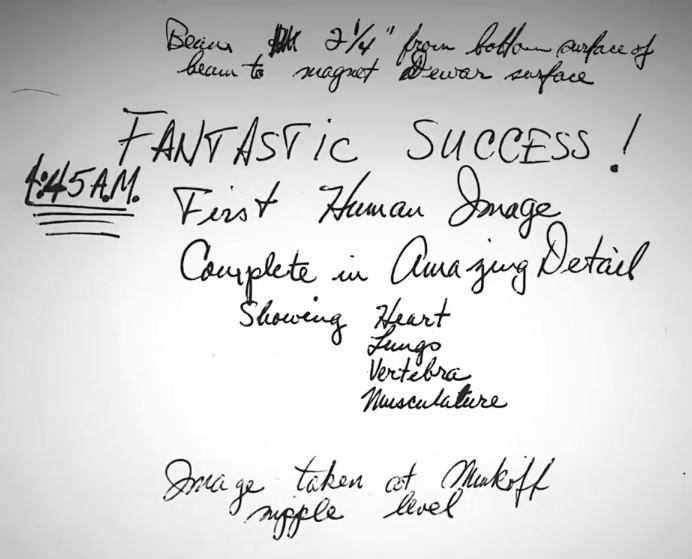 Beam 2 1/4" from bottom surface of
beam to magnet Dewar surface
FANTASTIC SUCCESS!
4:45 A.M.
First Human Image
Complete in Amazing Detail
Showing Heart
Lungs
Vertebra
Musculature
Image taken at Minkoff
nipple level